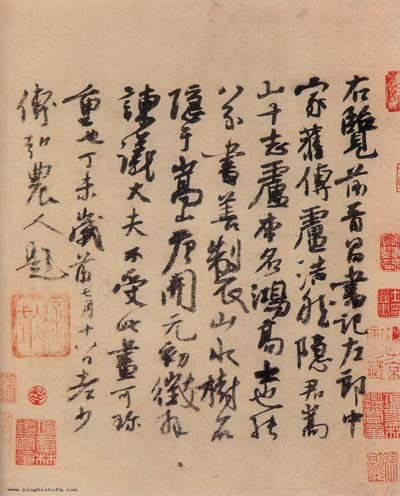 右覽前晉昌書記左郎中
家舊傳盧浩然隱君嵩
山十志盧本名鴻高士也能
八分書善製山水樹石
隱于嵩山唐開元初徵拜
諫議大夫不受此畫可珍
重也丁未歲前七月十八日老少
傅弘農人題
www.yingbishufa.com